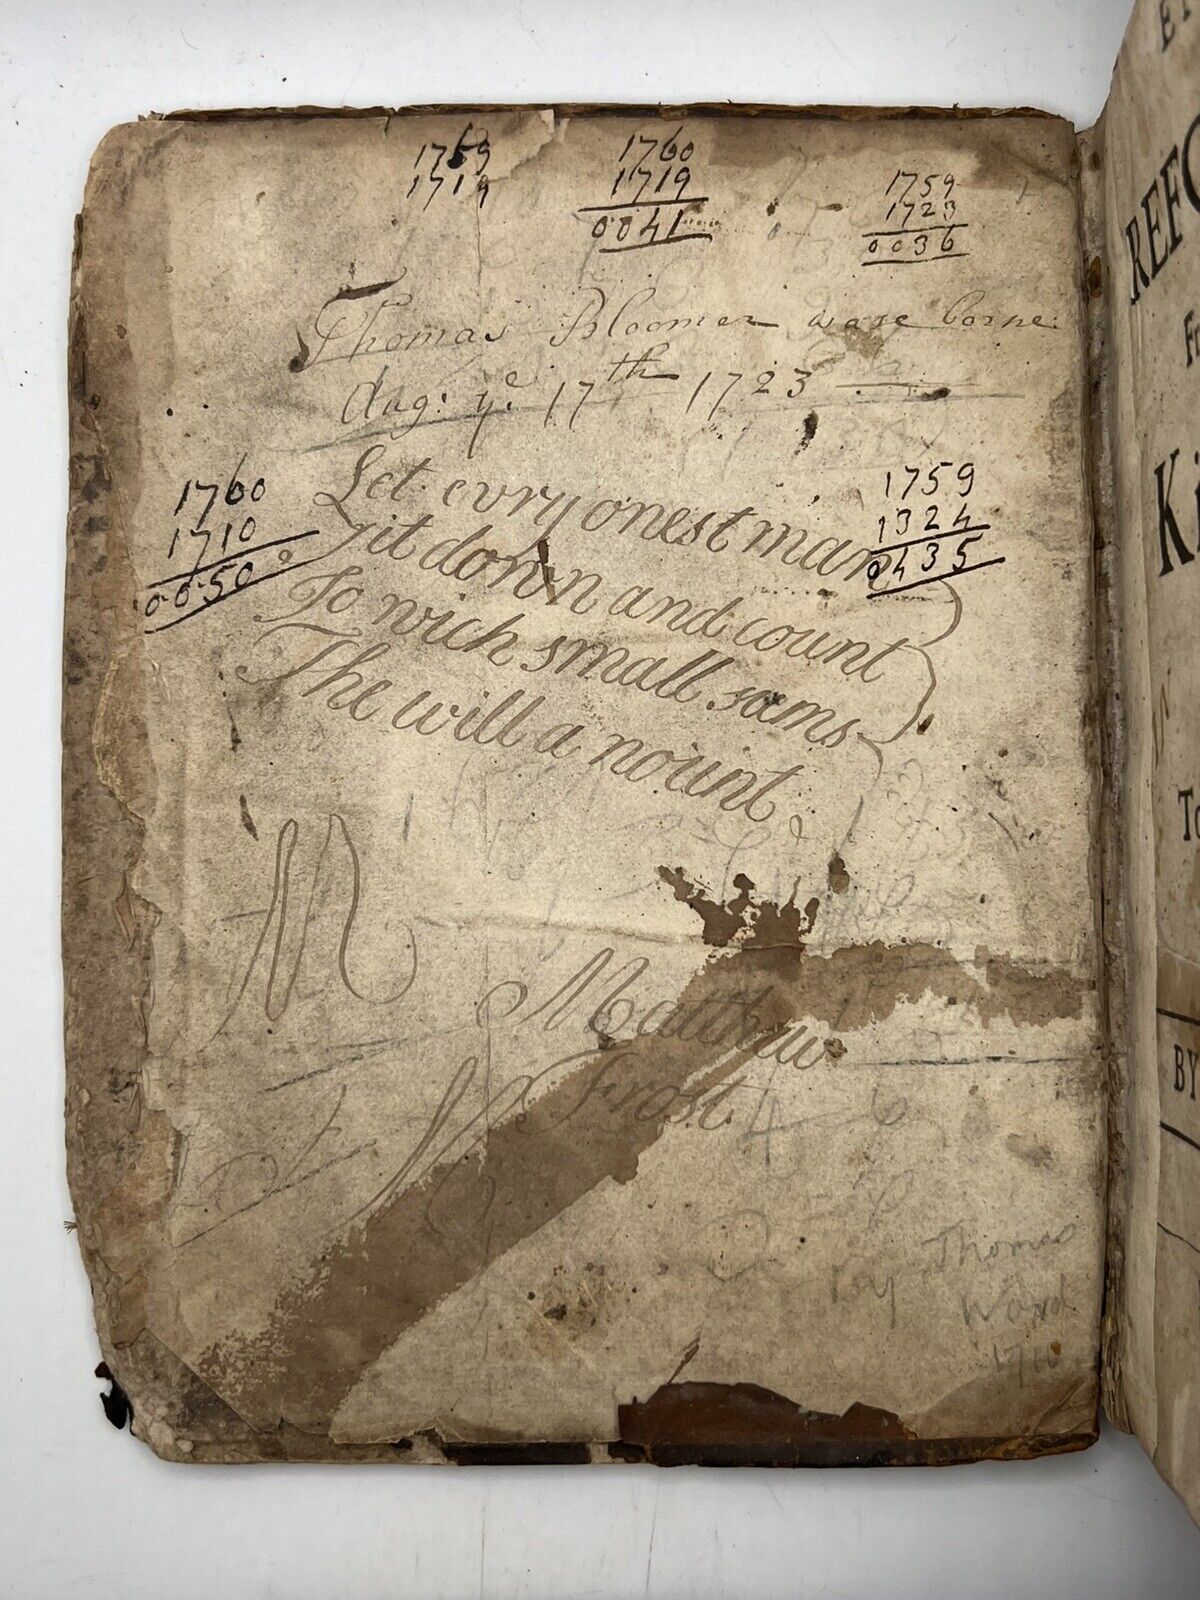 1759
1719
1760
1719
0041
1759
1723
0036
Thomas Bloomer ware borne
Aug: ye 17th 1723
1760
1710
0050
1759
1324
0435
Let evry onest man
sit down and count
To wich small sams
The will a nount
M
Matthew
Frost
by Thomas
Ward
1710
REF
Ki
BY